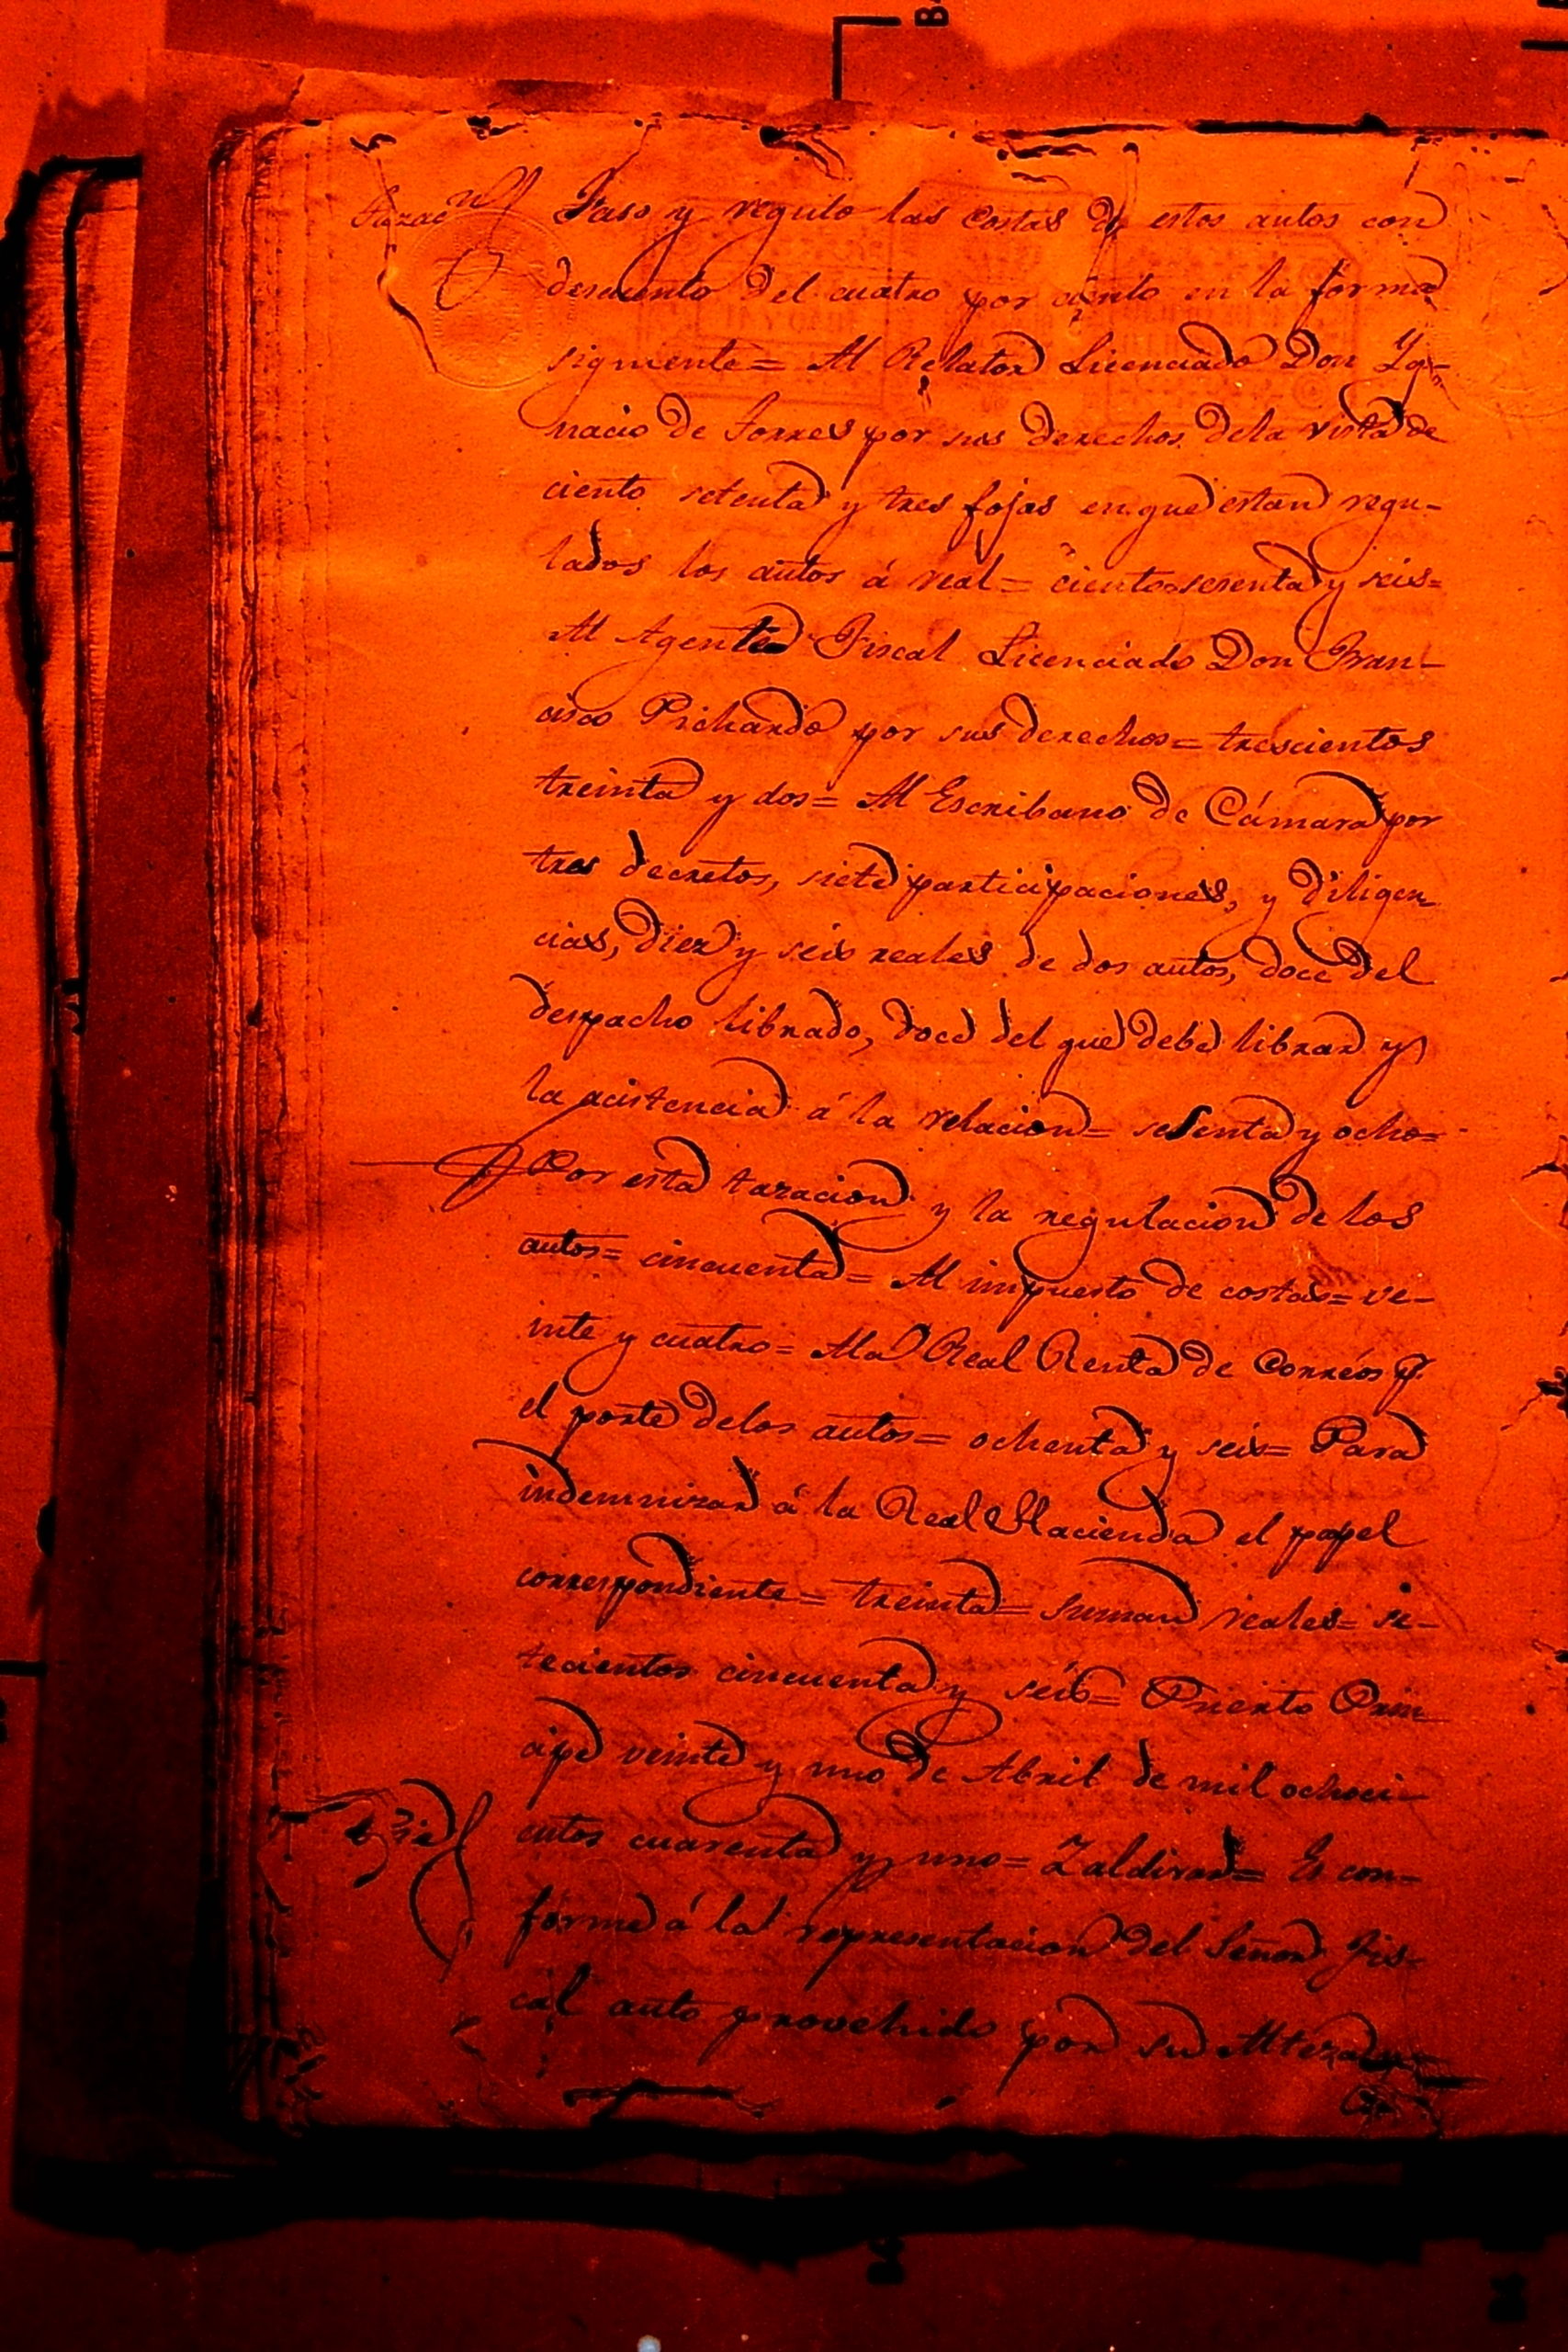 Tazac.ⁿ
Taso y regulo las costas de estos autos con
descuento del cuatro por ciento en la forma
siguiente= Al Relator Licenciado Don Yg-
nacio de Torres por sus derechos dela vista de
ciento setenta y tres fojas en que estan regu-
lados los autos á real= ciento sesenta y seis=
Al Agente Fiscal Licenciado Don Fran-
cisco Pichardo por sus derechos= trescientos
treinta y dos= Al Escribano de Cámara por
tres decretos, siete participaciones, y diligen
cias, diez y seis reales de dos autos, doce del
despacho librado, doce del que debe librar y
la acistencia á la relacion= sesenta y ocho=
Por esta tazacion y la regulacion de los
autos= cincuenta= Al impuesto de costas= ve-
inte y cuatro= Ala Real Renta de Correos p.
el porte delos autos= ochenta y seis= Para
indemnizar á la Real Hacienda el papel
correspondiente= treinta= suman reales= se-
tecientos cincuenta y seis= Puerto Prin
cipe veinte y uno de Abril de mil ochoci-
entos cuarenta y uno= Zaldivar= Es con-
forme á la representacion del Señor Fis-
cal auto provehido por su Alteza